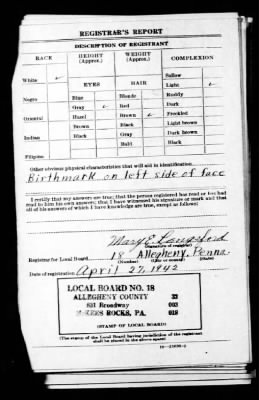 REGISTRAR'S REPORT
DESCRIPTION OF REGISTRANT
RACE HEIGHT (Approx.) WEIGHT (Approx.) COMPLEXION
White ✓
Negro
Oriental
Indian
Filipino
EYES
Blue
Gray ✓
Hazel
Brown
Black
HAIR
Blonde
Red
Brown ✓
Black
Gray
Bald
Sallow
Light ✓
Ruddy
Dark
Freckled
Light brown
Dark brown
Black
Other obvious physical characteristics that will aid in identification
Birthmark on left side of face
I certify that my answers are true; that the person registered has read or has had
read to him his own answers; that I have witnessed his signature or mark and that
all of his answers of which I have knowledge are true, except as follows:
Mary E.
(Signature of registrar)
Registrar for Local Board 18 Allegheny, Penna.
(Number) (City or county) (State)
Date of registration April 27, 1942
LOCAL BOARD NO. 18
ALLEGHENY COUNTY 33
Broadway 003
ROCKS, PA. 018
(STAMP OF LOCAL BOARD)
(The stamp of the Local Board having jurisdiction of the registrant
shall be placed in the above space)